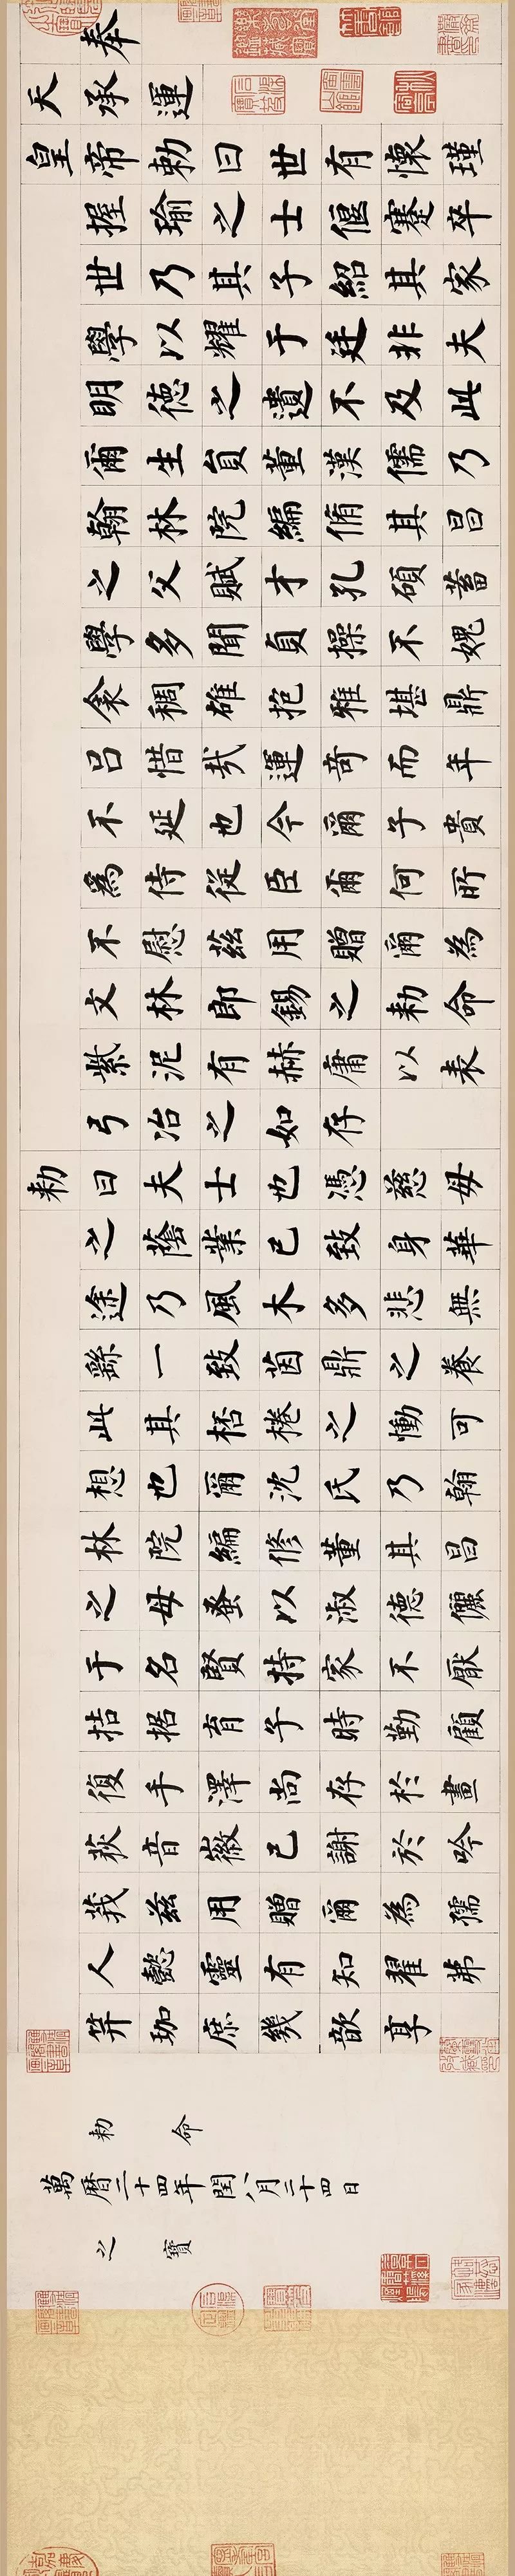 奉
天承運
皇帝勅曰世有懷瑾
握瑜之士偃蹇卒
世乃其子紹其家
學以耀于廷非夫
明德之遺不及此
爾生員董漢儒乃
翰林院編脩其昌
之父賦才孔碩蓄
學多聞貞操不媿
衾稠雄抱雅堪鼎
呂惜哉運奇而年
不延也今爾子貴
為侍從臣爾何所
不慰茲用贈爾為
文林郎錫之勅命
紫泥有赫庸以表
弓冶之如存
勅曰夫士也憑慈母
之蔭業已致身華
途乃風木多悲無
繇一致茵鼎之養
此其桮棬之慟可
想也爾沈氏乃翰
林院編修董其昌
之母蚤以淑德儷
于名賢持家不厭
拮据育子時勤顧
復手澤尚存於畫
荻音徽已謝於吟
莪茲用贈爾為孺
人懿靈有知翟茀
笄珈庶幾歆享
勅命
萬曆二十四年閏八月二十四日
之寶